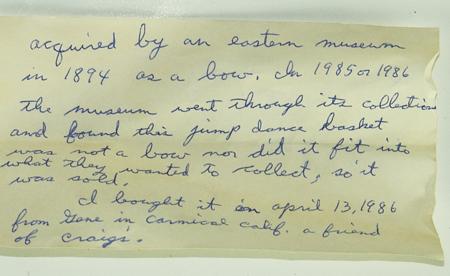 acquired by an eastern museum
in 1894 as a bow. In 1985 or 1986
the museum went through its collections
and found this jump dance basket
was not a bow nor did it fit into
what they wanted to collect, so it
was sold.
I bought it on april 13, 1986
from Gene in Carmical Calif. a friend
of Craig's.